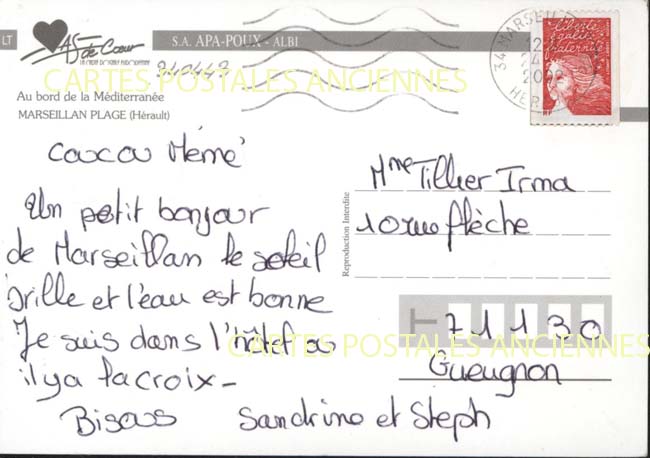 LT
AS de Cœur
S.A. APA-POUX - ALBI
CARTES POSTALES ANCIENNES
Au bord de la Méditerranée
MARSEILLAN PLAGE (Hérault)
34 MARSEIL
12
24
20
HER
liberté
égalité
fraternité
Coucou Mémé
Un petit bonjour
de Marseillan le soleil
brille et l'eau est bonne
Je suis dans l'hôtel ou
il y a la croix -
Bisous Sandrine et Steph
Reproduction Interdite
Mme Tillier Irma
10 rue flèche
71130
Gueugnon
CARTES POSTALES ANCIENNES